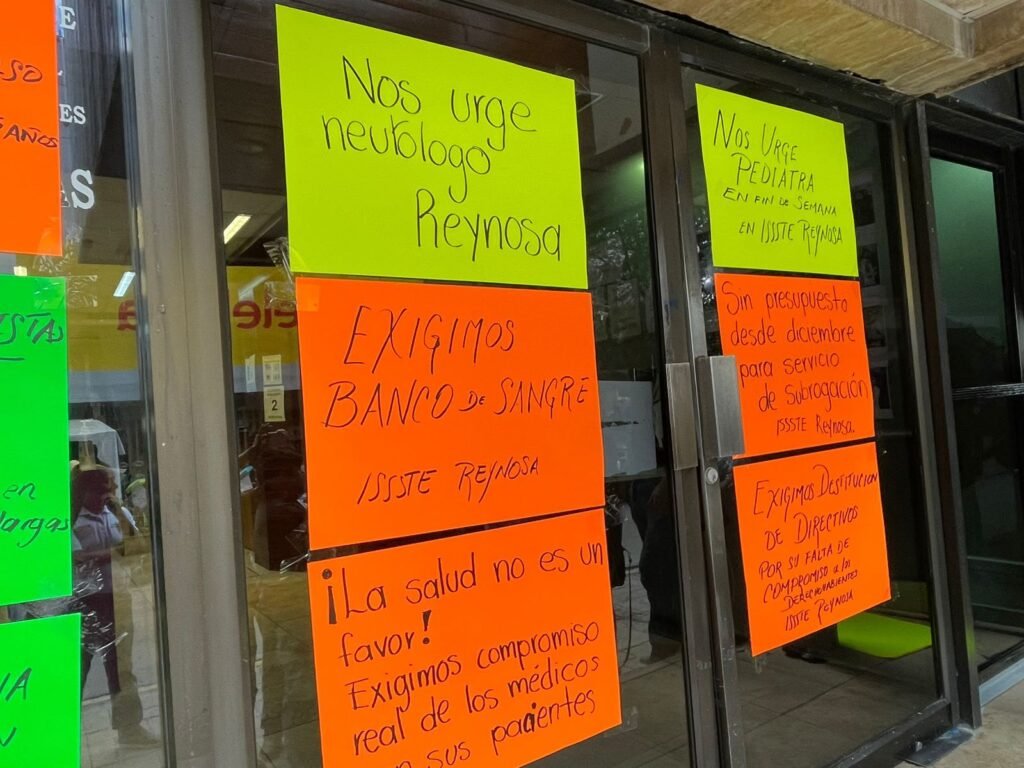 SO
AÑOS
E
ES
S
ISTAS
en
largas
Nos urge
neurólogo
Reynosa
EXIGIMOS
BANCO DE SANGRE
ISSSTE REYNOSA
¡La salud no es un
favor!
Exigimos compromiso
real de los médicos
sus pacientes
2
ele
Nos URGE
PEDIATRA
EN FIN DE SEMANA
EN ISSSTE REYNOSA
Sin presupuesto
desde diciembre
para servicio
de subrogación
ISSSTE Reynosa.
EXIGIMOS DESTITUCION
DE DIRECTIVOS
POR SU FALTA DE
COMPROMISO a los
DERECHOHABIENTES
ISSSTE REYNOSA